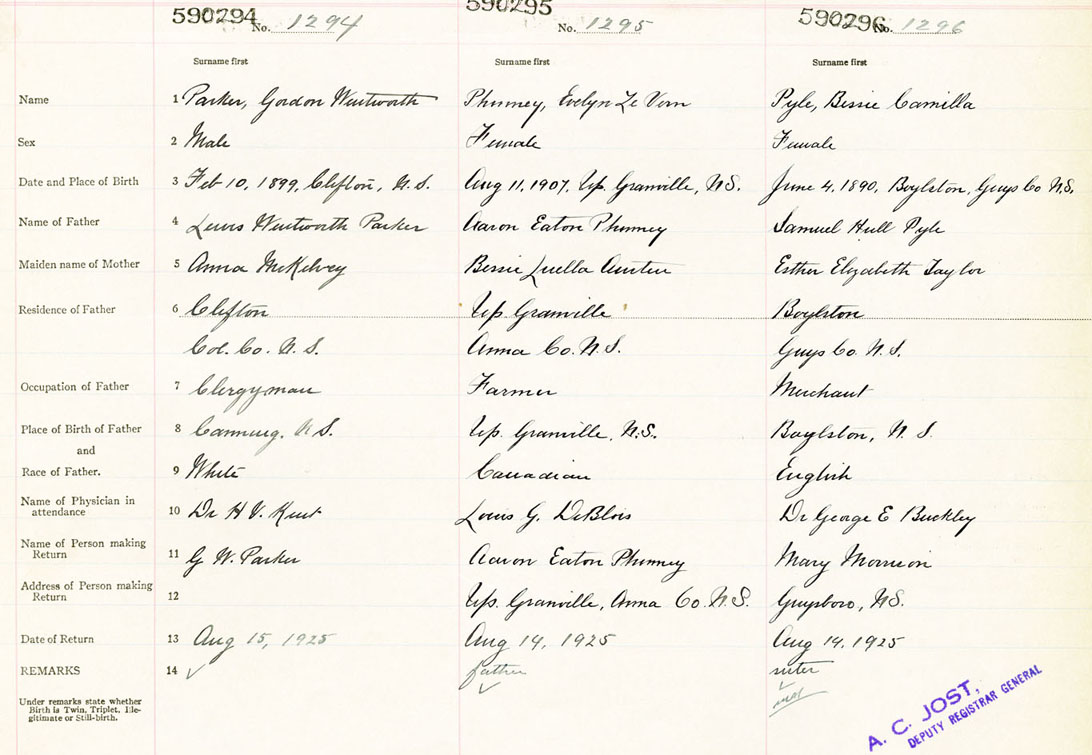 590294 No. 1294 590295 No. 1295 590296 No. 1296
Surname first Surname first Surname first
Name 1 Parker, Gordon Wentworth Phinney, Evelyn Le Vern Pyle, Bessie Camilla
Sex 2 Male Female Female
Date and Place of Birth 3 Feb 10, 1899, Clifton, N.S. Aug 11, 1907, Up. Granville, N.S. June 4, 1890, Boylston, Guys Co N.S.
Name of Father 4 Lewis Wentworth Parker Aaron Eaton Phinney Samuel Hull Pyle
Maiden name of Mother 5 Anna McKelvey Bessie Luella Esther Elizabeth Taylor
Residence of Father 6 Clifton Up. Granville Boylston
Col. Co. N.S. Anna Co. N.S. Guys Co. N.S.
Occupation of Father 7 Clergyman Farmer Merchant
Place of Birth of Father 8 Canning, N.S. Up. Granville, N.S. Boylston, N.S.
and
Race of Father. 9 White Canadian English
Name of Physician in
attendance 10 Dr H V. Kent Louis G. DeBlois Dr George E Buckley
Name of Person making
Return 11 G W. Parker Aaron Eaton Phinney Mary Morrison
Address of Person making
Return 12 Up. Granville, Anna Co. N.S. Guysboro, N.S.
Date of Return 13 Aug 15, 1925 Aug 14, 1925 Aug 14, 1925
REMARKS 14 father sister
Under remarks state whether
Birth is Twin, Triplet, Ille-
gitimate or Still-birth.
A. C. JOST,
DEPUTY REGISTRAR GENERAL